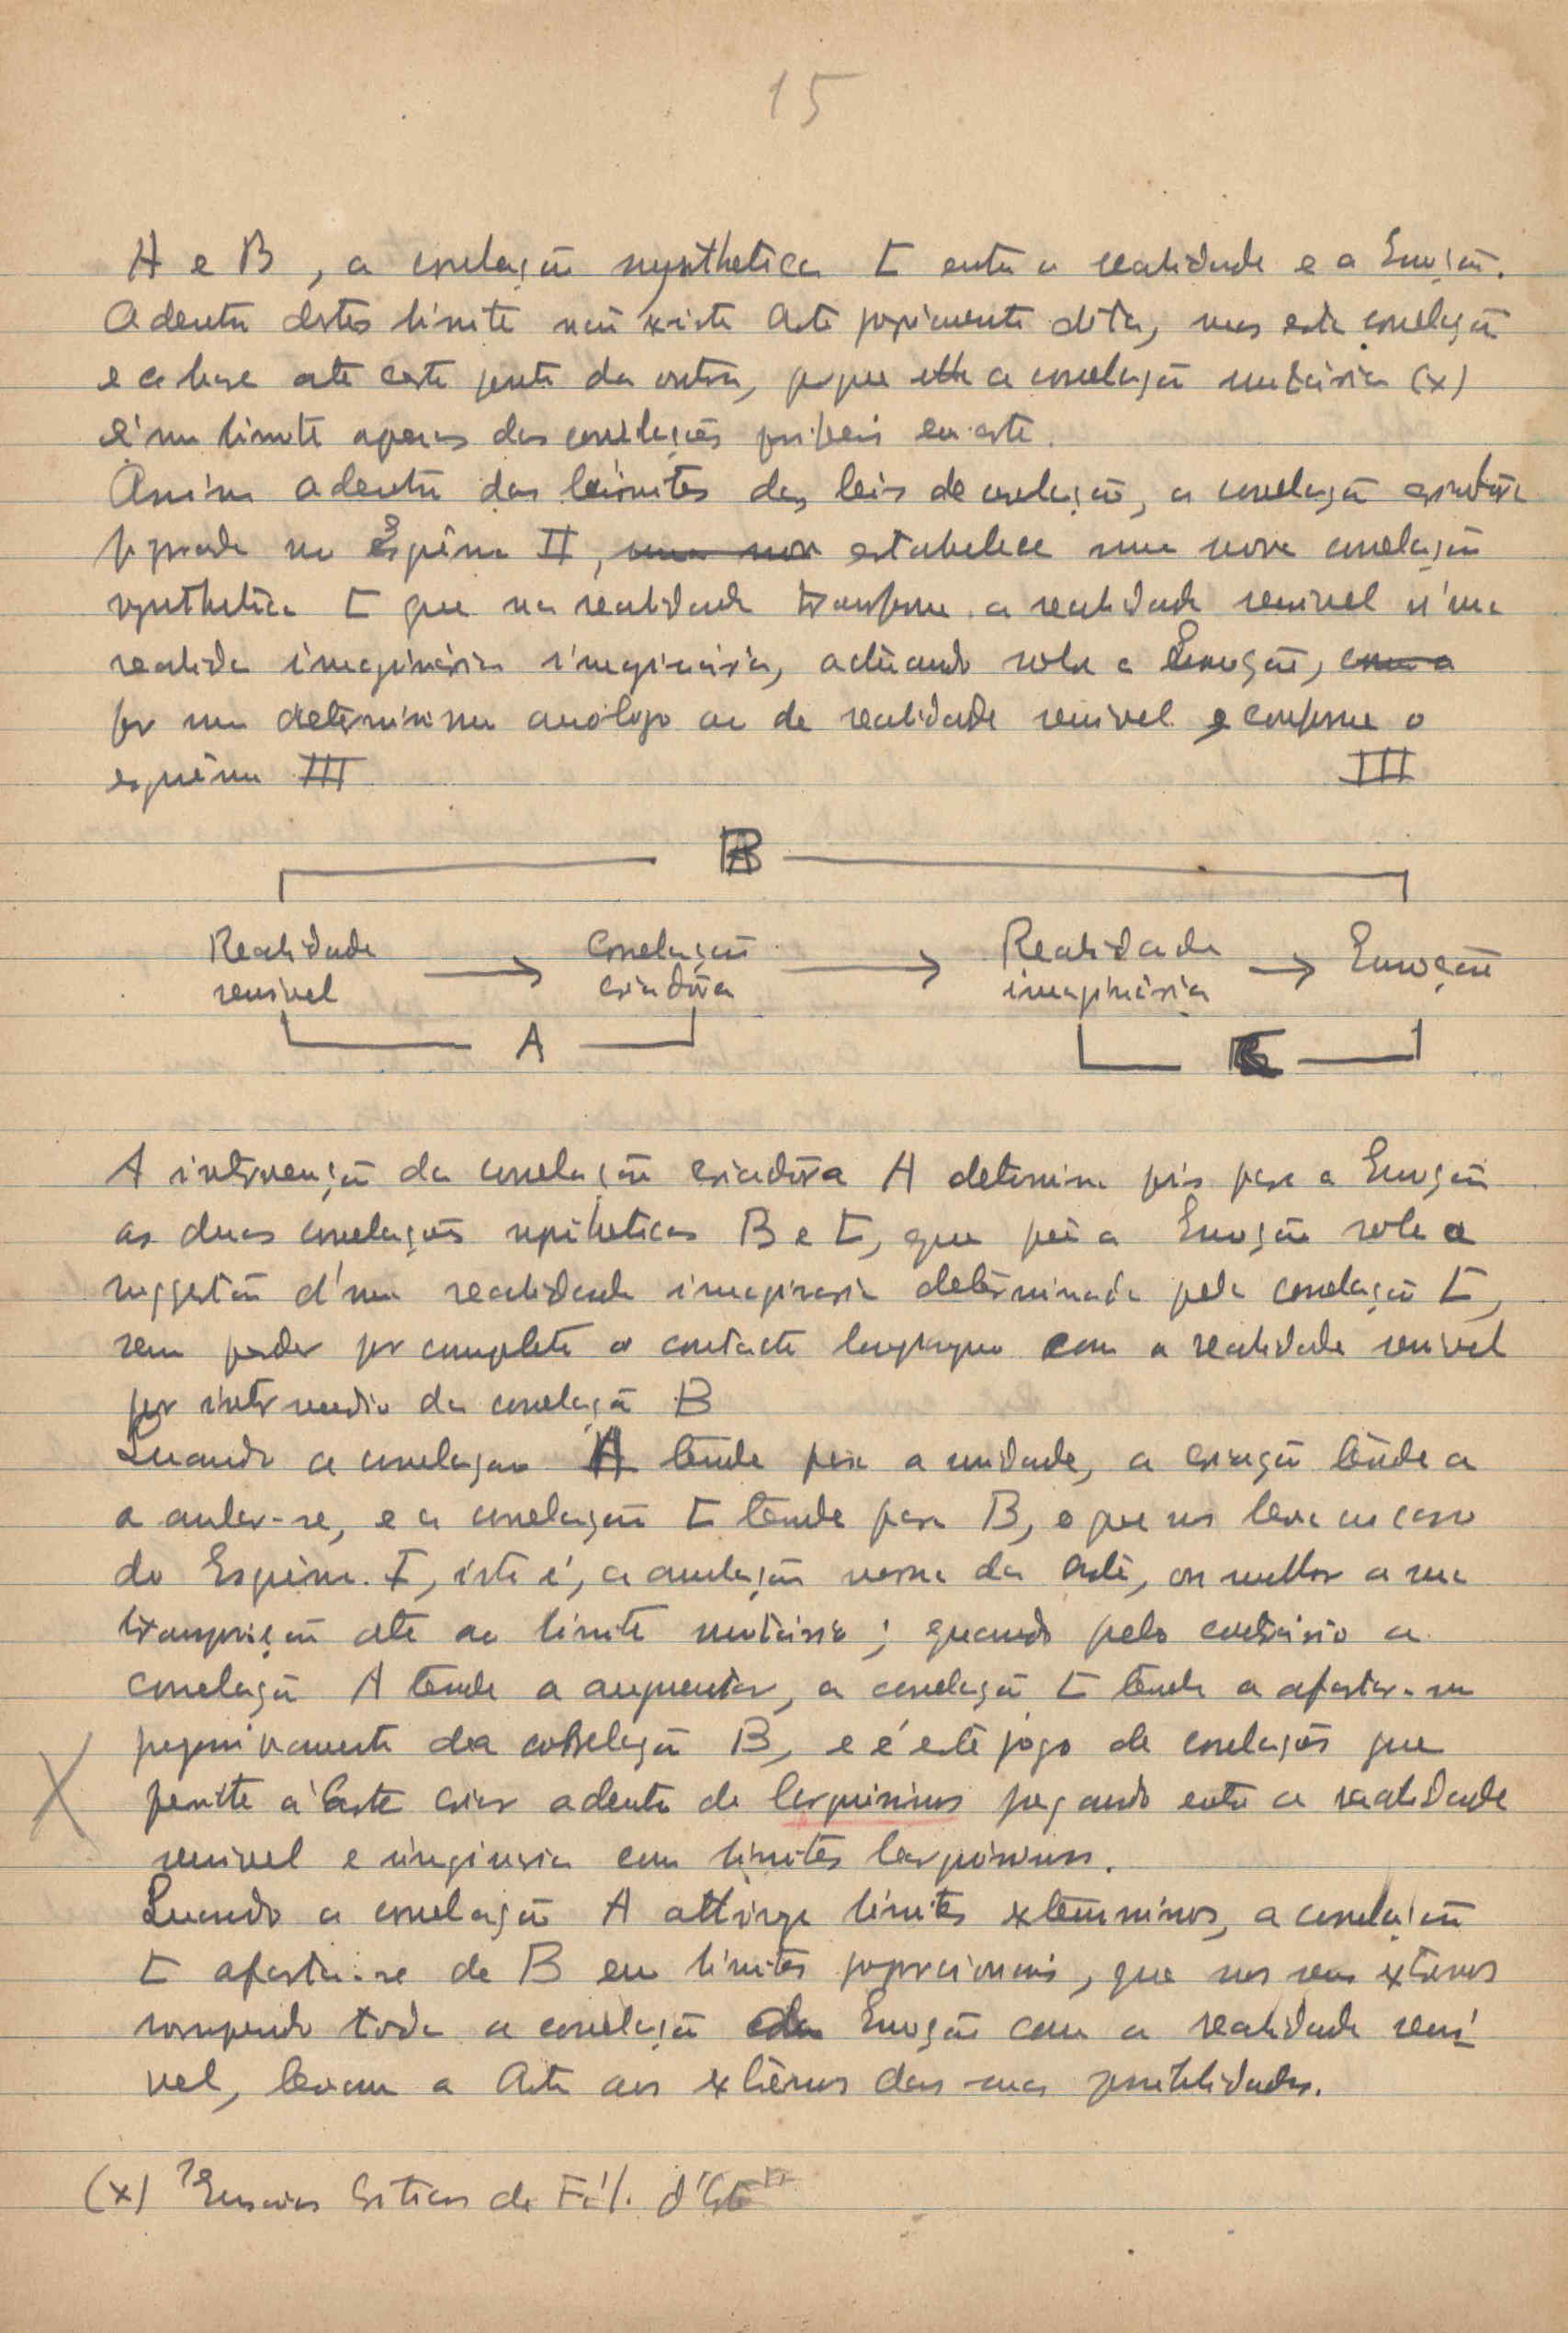 15
A e B, a correlação synthetica C entre a realidade e a Emoção.
Adentro destes limites não existe Arte propriamente dita, mas esta correlação
e a base até certo ponto da outra, porque a correlação unitária (x)
é um limite apenas das correlações possiveis em arte.
Assim adentro dos limites das leis de correlação, a correlação criadora
no Esquêma II, uma nov estabelece uma nova correlação
synthetica C que na realidade transforma a realidade sensivel n'uma
realida imaginária imaginária, actuando sobre a Emoção, com a
por um determinismo anólogo ao de realidade sensivel e conforme o
esquêma III
III
B
Realidade sensivel → Correlação criadôra → Realidade imaginária → Emoção
A
C
A intervenção da correlação criadôra A determina pois para a Emoção
as duas correlações syntheticas B e C, que põe a Emoção sob a
suggestão d'uma realidade imaginaria determinada pela correlação C,
sem perder por completo o contacto longinquo com a realidade sensivel
por intermedio da correlação B
Quando a correlação A tende para a unidade, a criação tende a
a anular-se, e a correlação C tende para B, o que nos leva ao caso
do Esquêma I, isto é, a anulação mesma da Arte, ou melhor a sua
transposição até ao limite unitário; quando pelo contrário a
correlação A tende a augmentar, a correlação C tende a afastar-se
progressivamente da correlação B, e é este jogo de correlações que
X permite á Arte criar adentro de larguissimos jogando entre a realidade
sensivel e imaginaria com limites larguissimos.
Quando a correlação A attinge limites extremissimos, a correlação
C afasta-se de B em limites proporcionais, que nos seus extremos
rompendo toda a correlação da Emoção com a realidade sensi
vel, levam a Arte aos extrêmos das suas possibilidades.
(x) "Ensaios Criticos de Fil. d'Arte"